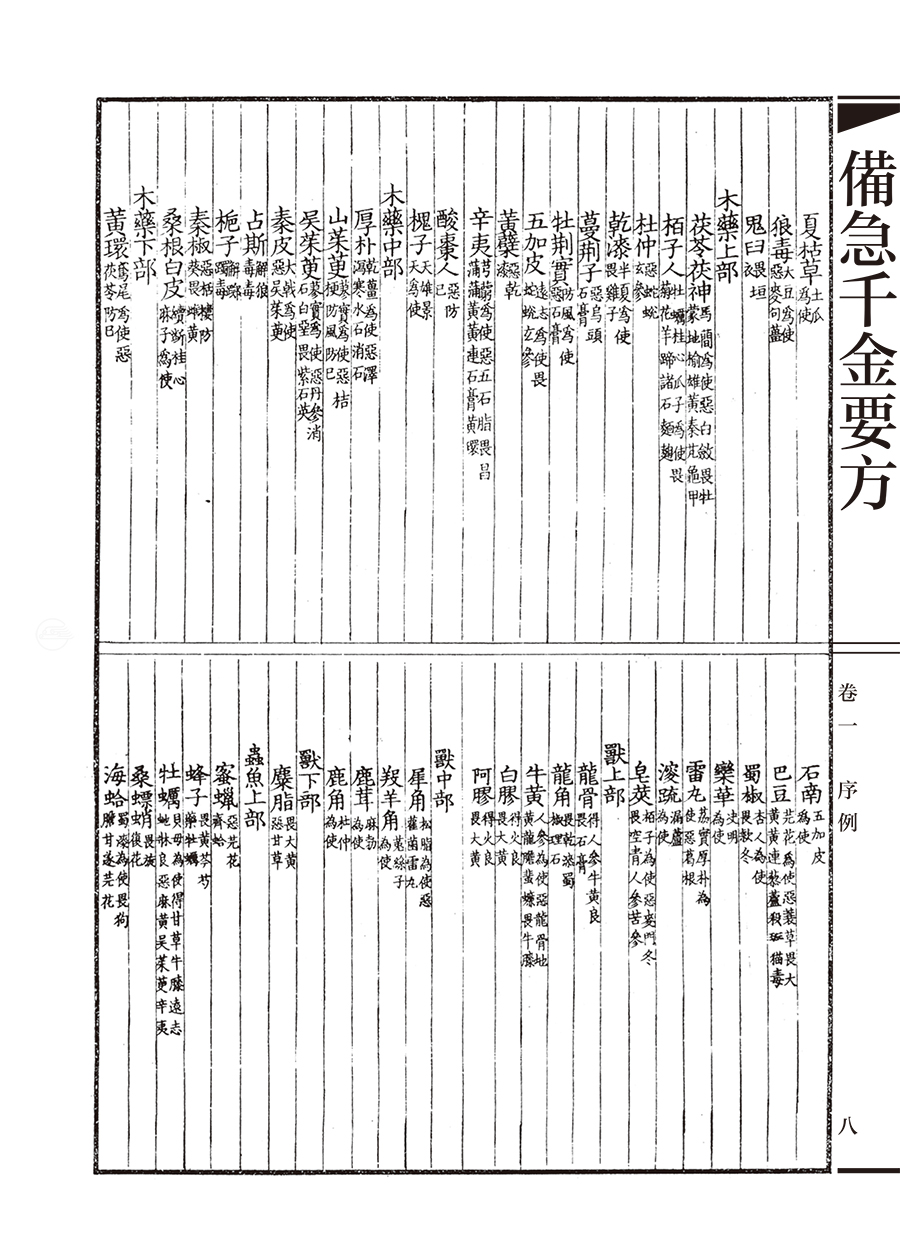 備急千金要方
卷一 序例
八
夏枯草土瓜為使
狼毒大豆為使惡麥句薑
鬼臼畏垣衣
木藥上部
茯苓茯神馬䕡為使惡白斂畏牡蒙地榆雄黃秦艽龜甲
栢子人牡蠣桂心瓜子為使畏菊花羊蹄諸石麵麴
杜仲惡蛇蛻玄參
乾漆半夏為使畏雞子
蔓荊子惡烏頭石膏
牡荊實防風為使惡石膏
五加皮遠志為使畏蛇蛻玄參
黃蘗惡乾漆
辛夷芎藭為使惡五石脂畏昌蒲蒲黃黃連石膏黃環
酸棗人惡防己
槐子天雄景天為使
木藥中部
厚朴乾薑為使惡澤瀉寒水石消石
山茱萸蓼實為使惡桔梗防風防己
吳茱萸蓼實為使惡丹參消石白堊畏紫石英
秦皮大戟為使惡吳茱萸
占斯解狼毒毒
梔子解躑躅毒
秦椒惡栝樓防葵畏雌黃
桑根白皮續斷桂心麻子為使
木藥下部
黃環鳶尾為使惡茯苓防已
石南五加皮為使
巴豆芫花為使惡蘘草畏大黃黃連藜蘆殺斑猫毒
蜀椒杏人為使畏款冬
欒華決明為使
雷丸荔實厚朴為使惡葛根
溲疏漏蘆為使
皂莢栢子為使惡麥門冬畏空青人參苦參
獸上部
龍骨得人參牛黃良畏石膏
龍角畏乾漆蜀椒理石
牛黃人參為使惡龍骨地黃龍膽蜚蠊畏牛膝
白膠得火良畏大黃
阿膠得火良畏大黃
獸中部
犀角松脂為使惡雚菌雷丸
羖羊角菟絲子為使
鹿茸麻勃為使
鹿角杜仲為使
獸下部
麋脂畏大黃惡甘草
蟲魚上部
蜜蠟惡芫花齊蛤
蜂子畏黃芩芍藥牡蠣
牡蠣貝母為使得甘草牛膝遠志蛇牀良惡麻黃吳茱萸辛夷
桑螵蛸畏旋復花
海蛤蜀漆為使畏狗膽甘遂芫花